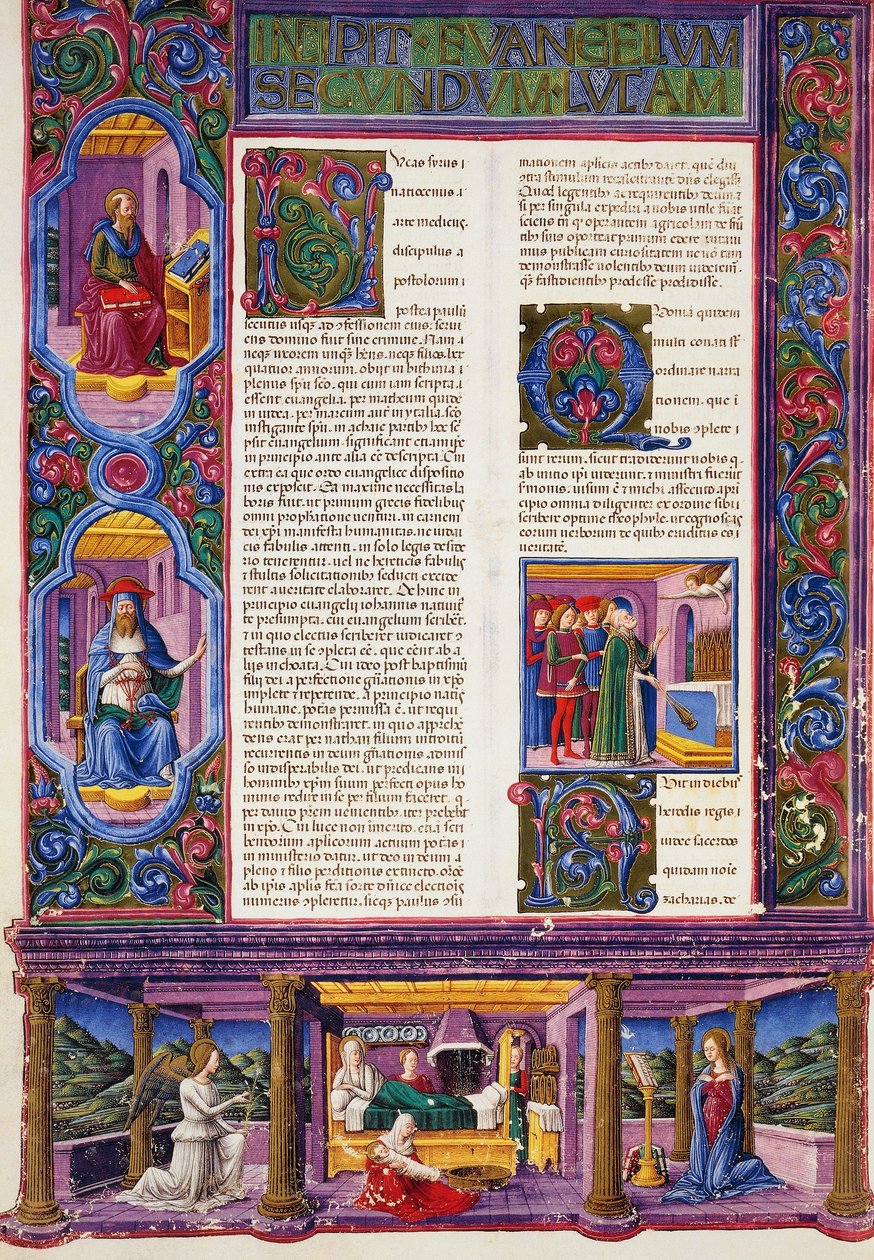 INCIPIT · EVANGELIVM
SECVNDVM · LVCAM
Lucas syrus
natione
arte medicus
discipulus a
postolorum
postea paulū
secutus usqȝ ad ꝯfessionem eius, serui
ens domino fuit sine crimine. Nam
neqȝ uxorem unqȝ hñs, neqȝ filios
quatuor annorum, obijt in bithinia
plenus spū sco. qui cum iam scripta
essent euangelia. per matheum quidē
in iudea. per marcum aut in ytalia. sco
instigante spū. in achaie partibȝ
psit euangelium.
in principio ante alia eē descripta. Cui
extra ea que ordo euangelice dispositio
nis exposcit. Ea maxime necessitas la
boris fuit. ut primum grecis fidelibus
omni prophatione uenturi in carnem
dei xp̄i manifesta humanitas. ne iudai
cis fabulis attenti. in solo legis deside
rio tenerentur. uel ne hereticis fabulis
et stultis solicitationibȝ seducti excide
rent a ueritate elaboraret. Dehinc in
principio euangelii iohannis natiuitē
te presumpta. cui euangelium scriberet.
et in quo electus scriberet iudicaret
testans in se ꝯpleta eē. que eēnt ab a
liis inchoata. Cui ideo post baptismū
filii dei a perfectione gnationis in xp̄o
implete et repetende. a principio natiūs
humane. potās permissa ē. ut requi
rentibȝ demonstraret. in quo appreħē
dens erat per nathan filium introitū
recurrentis in deum gnationis admis
so indisperabilis dei. ut predicans in
hominibȝ xp̄m suum perfecti opus ho
minis redire in se per filium faceret. q̄
per dauid prem uenientibȝ. iter prebebat
in xp̄o. Cui luce non imerito. etiā scri
bendorum aplicorum actium potās
in ministerio datur. ut deo in deum
pleno et filio perditionis extincto. orōe
ab ipīs aplīs fcā sorte dnice electiōis
numerus ꝯpleretur. sicqȝ paulus ꝯsū
mationem aplicis actibȝ daret. quē diu
ꝯtra stimulum recalcitrantē dn̄s elegiss
Quod legentibȝ ac requirentibȝ deum
si per singula expediri a nobis utile fuiat
sciens tn̄ q operantem agricolam de fru
tibȝ suis oporteat primum edere uitaui
mus publicam curiositatem ne nō tam
demonstrasse uolentibȝ deum uideremr̄.
q̄ fastidientibȝ prodesse prodidisse.
Quoniā quidem
multi conati sꝉ
ordinare narra
tionem. que
nobis ꝯplete
sunt rerum. sicut tradiderunt nobis q
ab initio ipī uiderunt. et ministri fuerūt
smonis. uisum ē et michi assecuto a pri
cipio omnia diligenter ex ordine tibi
scribere optime theophyle. ut cognoscas
eorum uerborum de quibȝ eruditus es
ueritatē.
Fuit in diebus
herodis regis
iudee sacerdos
quidam noīe
zacharias. de